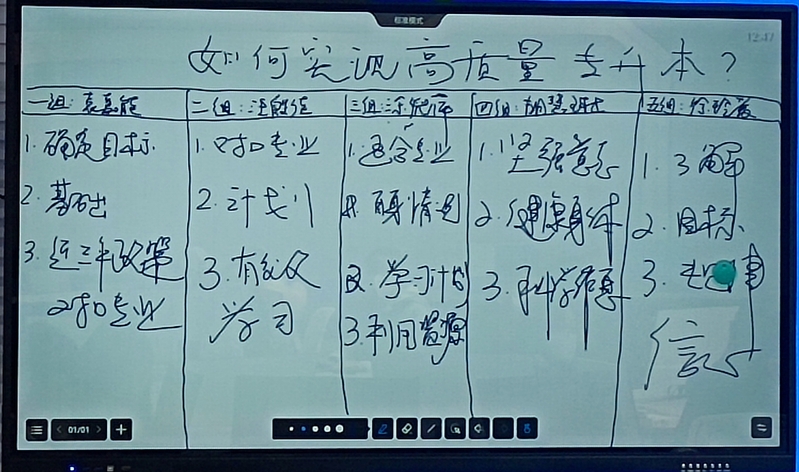 标准模式
12:47
如何实现高质量专升本？
一组：袁嘉能
二组：
三组：
四组：
五组：
1. 确定目标
2. 基础
3. 近三年政策
对口专业
1. 对口专业
2. 计划
3. 有效
学习
1. 适合专业
自身情况
学习计划
3. 利用资源
1. 坚强意志
2. 健康身体
3. 科学
1. 了解
2. 目标
3.
信
01/01